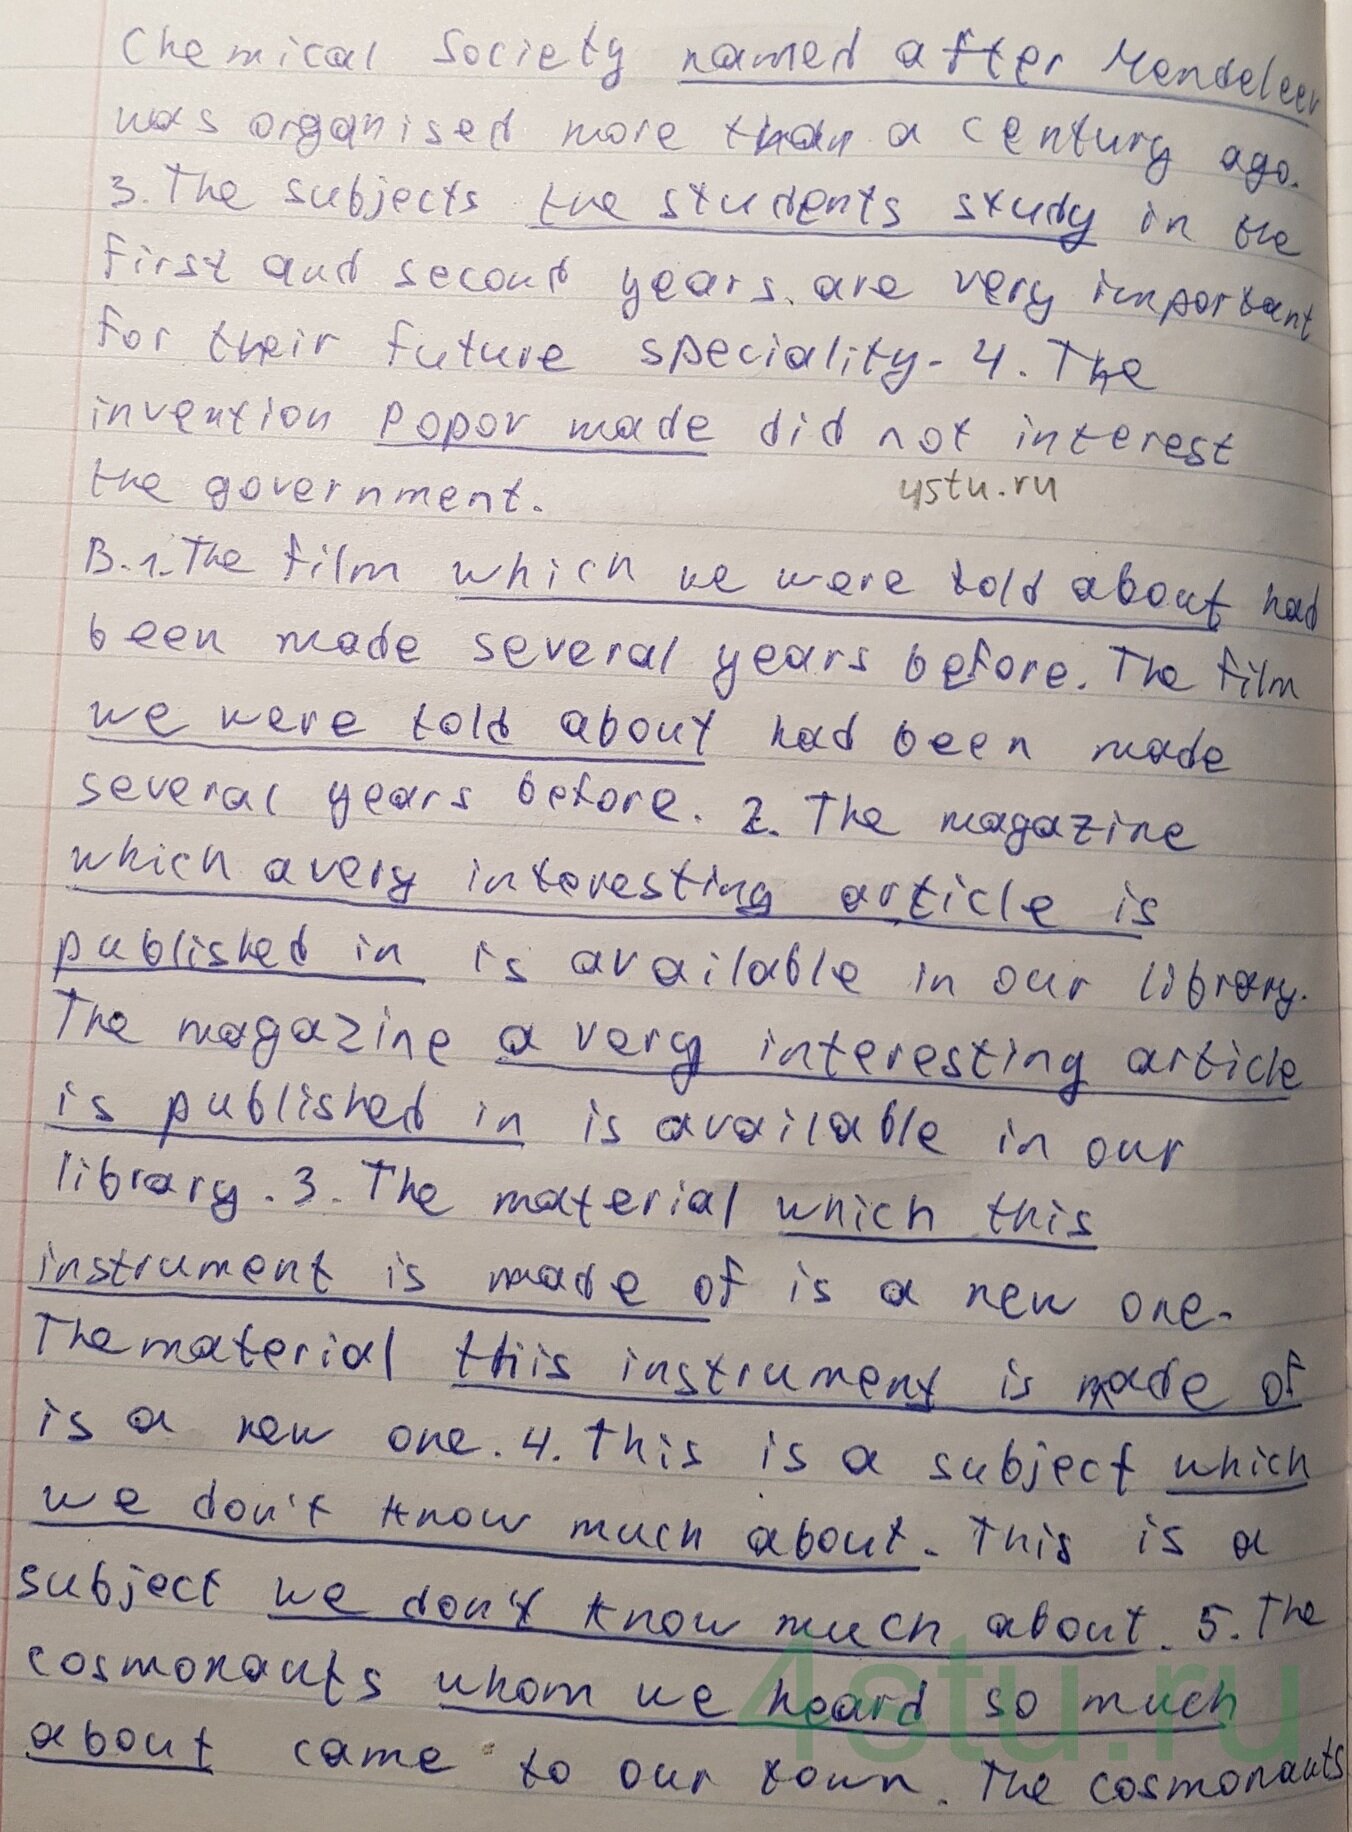 Chemical Society named after Mendeleev
was organised more than a century ago.
3. The subjects the students study in the
first and second years are very important
for their future speciality. 4. The
invention Popov made did not interest
the government.
4stu.ru
B. 1. The film which we were told about had
been made several years before. The film
we were told about had been made
several years before. 2. The magazine
which a very interesting article is
published in is available in our library.
The magazine a very interesting article
is published in is available in our
library. 3. The material which this
instrument is made of is a new one.
The material this instrument is made of
is a new one. 4. This is a subject which
we don't know much about. This is a
subject we don't know much about. 5. The
cosmonauts whom we heard so much
about came to our town. The cosmonauts
4stu.ru